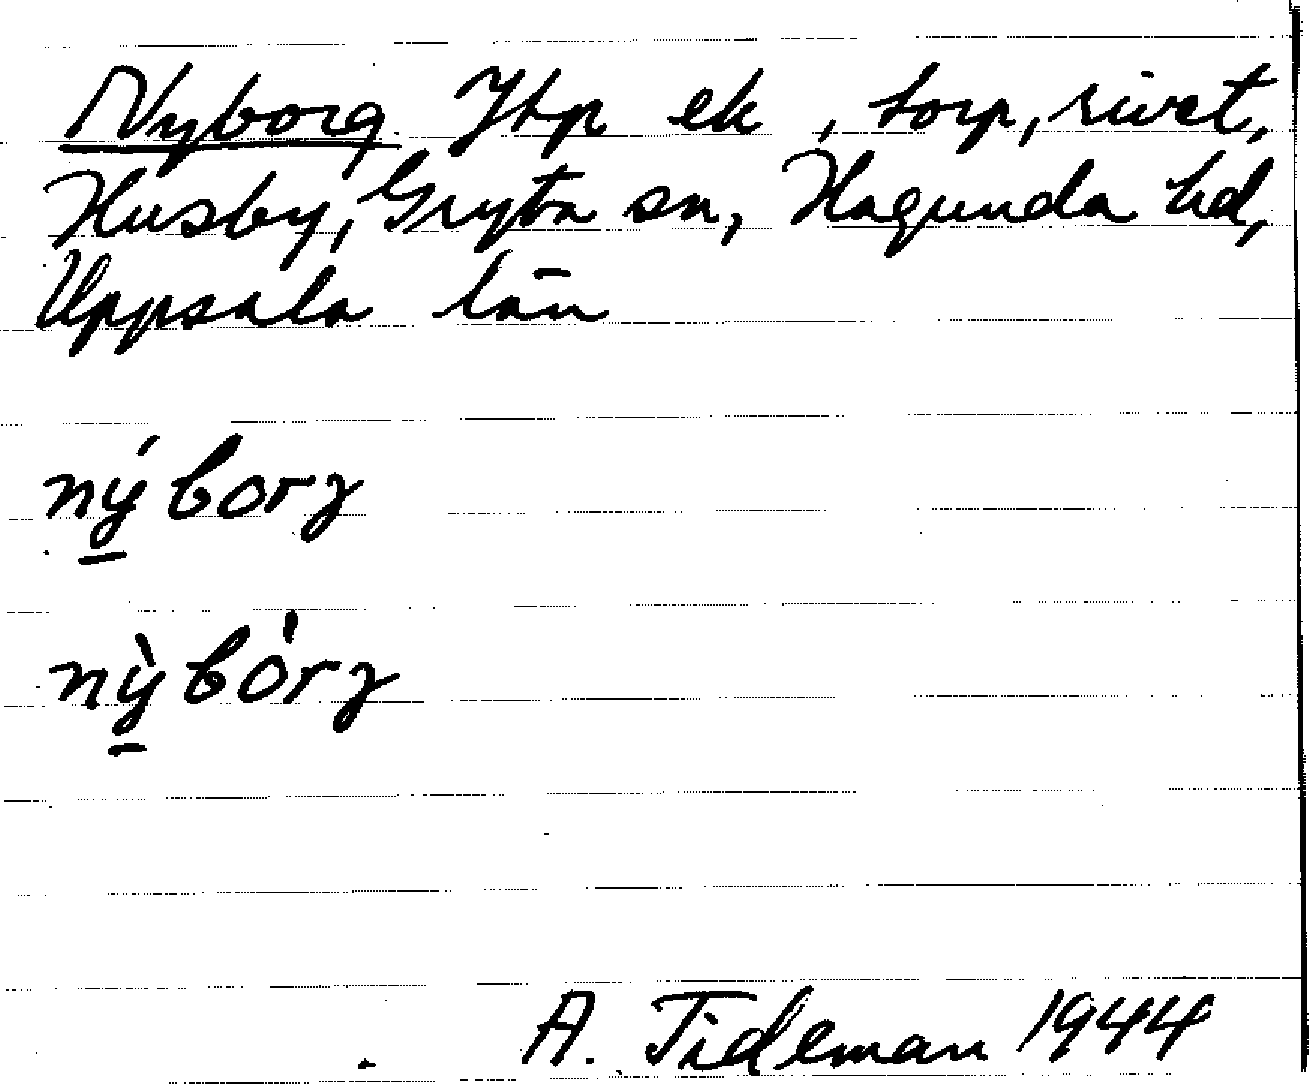 Nyborg Jtp ek, torp, rivet,
Husby, Gryta sn, Hagunda hd,
Uppsala län
ný̱borʒ
nỳ̱bórʒ
A. Tideman 1944